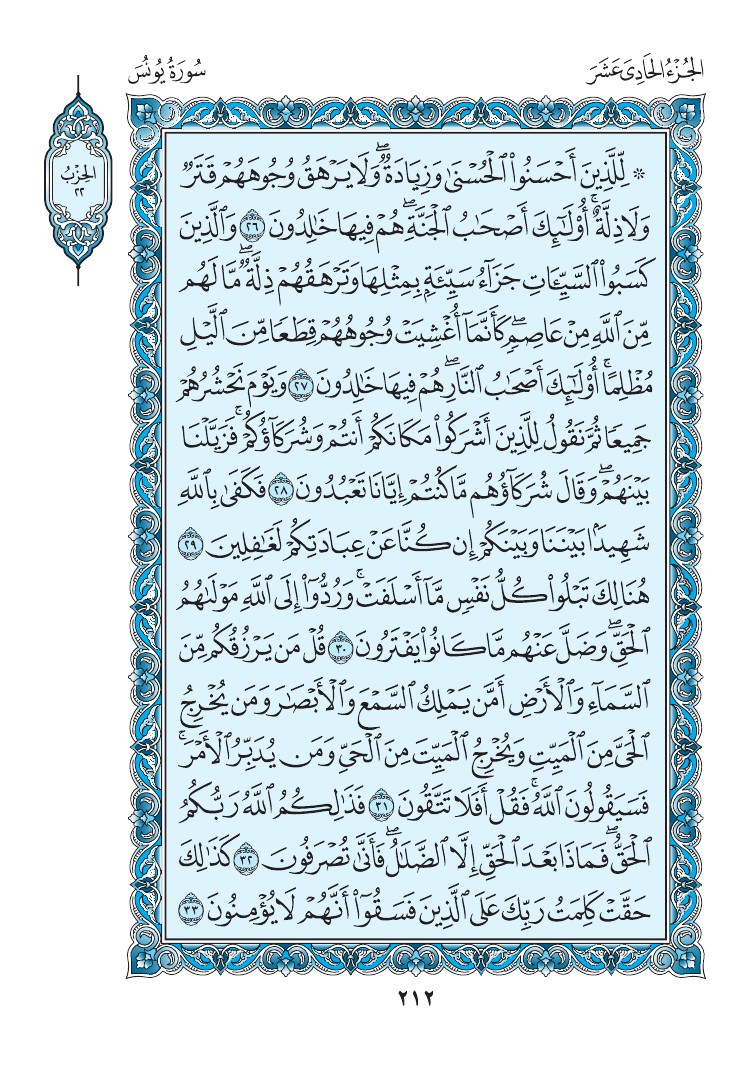 الجُزْءُ الحَادِىَ عَشَرَ
سُورَةُ يُونُسَ
الحِزْبُ
٢٢
۞ لِّلَّذِينَ أَحْسَنُوا۟ ٱلْحُسْنَىٰ وَزِيَادَةٌ ۖ وَلَا يَرْهَقُ وُجُوهَهُمْ قَتَرٌ
وَلَا ذِلَّةٌ ۚ أُو۟لَـٰٓئِكَ أَصْحَـٰبُ ٱلْجَنَّةِ ۖ هُمْ فِيهَا خَـٰلِدُونَ ٢٦ وَٱلَّذِينَ
كَسَبُوا۟ ٱلسَّيِّـَٔاتِ جَزَآءُ سَيِّئَةٍۭ بِمِثْلِهَا وَتَرْهَقُهُمْ ذِلَّةٌ ۖ مَّا لَهُم
مِّنَ ٱللَّهِ مِنْ عَاصِمٍ ۖ كَأَنَّمَآ أُغْشِيَتْ وُجُوهُهُمْ قِطَعًا مِّنَ ٱلَّيْلِ
مُظْلِمًا ۚ أُو۟لَـٰٓئِكَ أَصْحَـٰبُ ٱلنَّارِ ۖ هُمْ فِيهَا خَـٰلِدُونَ ٢٧ وَيَوْمَ نَحْشُرُهُمْ
جَمِيعًا ثُمَّ نَقُولُ لِلَّذِينَ أَشْرَكُوا۟ مَكَانَكُمْ أَنتُمْ وَشُرَكَآؤُكُمْ ۚ فَزَيَّلْنَا
بَيْنَهُمْ ۖ وَقَالَ شُرَكَآؤُهُم مَّا كُنتُمْ إِيَّانَا تَعْبُدُونَ ٢٨ فَكَفَىٰ بِٱللَّهِ
شَهِيدًۢا بَيْنَنَا وَبَيْنَكُمْ إِن كُنَّا عَنْ عِبَادَتِكُمْ لَغَـٰفِلِينَ ٢٩
هُنَالِكَ تَبْلُوا۟ كُلُّ نَفْسٍ مَّآ أَسْلَفَتْ ۚ وَرُدُّوٓا۟ إِلَى ٱللَّهِ مَوْلَىٰهُمُ
ٱلْحَقِّ ۖ وَضَلَّ عَنْهُم مَّا كَانُوا۟ يَفْتَرُونَ ٣٠ قُلْ مَن يَرْزُقُكُم مِّنَ
ٱلسَّمَآءِ وَٱلْأَرْضِ أَمَّن يَمْلِكُ ٱلسَّمْعَ وَٱلْأَبْصَـٰرَ وَمَن يُخْرِجُ
ٱلْحَىَّ مِنَ ٱلْمَيِّتِ وَيُخْرِجُ ٱلْمَيِّتَ مِنَ ٱلْحَىِّ وَمَن يُدَبِّرُ ٱلْأَمْرَ ۚ
فَسَيَقُولُونَ ٱللَّهُ ۚ فَقُلْ أَفَلَا تَتَّقُونَ ٣١ فَذَٰلِكُمُ ٱللَّهُ رَبُّكُمُ
ٱلْحَقُّ ۖ فَمَاذَا بَعْدَ ٱلْحَقِّ إِلَّا ٱلضَّلَـٰلُ ۖ فَأَنَّىٰ تُصْرَفُونَ ٣٢ كَذَٰلِكَ
حَقَّتْ كَلِمَتُ رَبِّكَ عَلَى ٱلَّذِينَ فَسَقُوٓا۟ أَنَّهُمْ لَا يُؤْمِنُونَ ٣٣
٢١٢